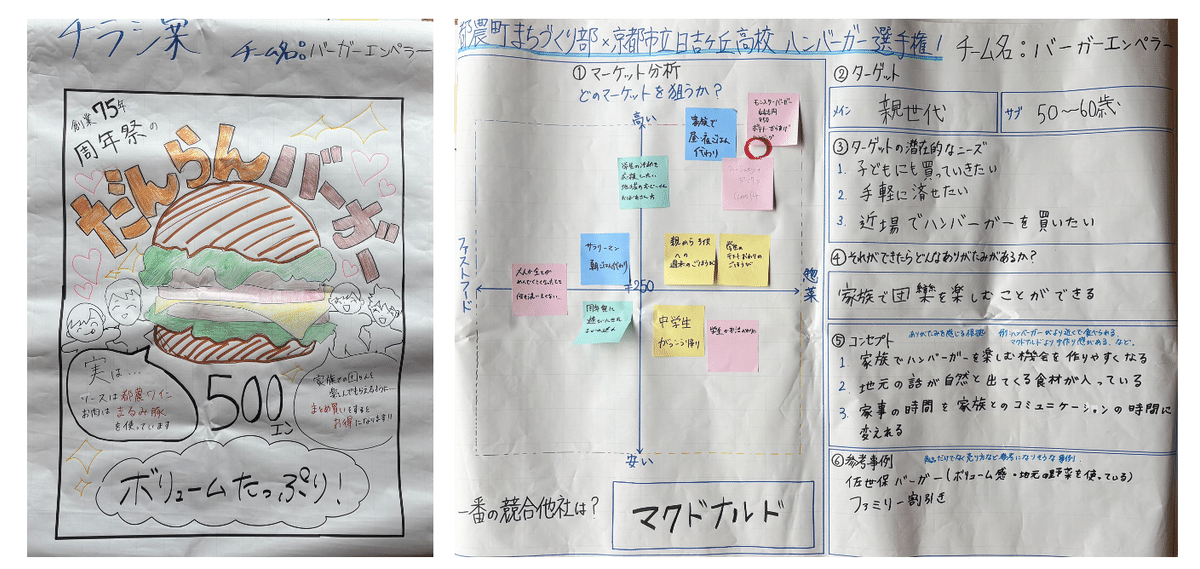 チラシ案
チーム名：バーガーエンペラー
創業75年
周年祭の
だんらんバーガー
実は…
ソースは都農ワイン
お肉はまるみ豚
を使っています
500
エン
家族での団らんを
楽しんでもらえるように…
まとめ買いをすると
お得になります!!
ボリュームたっぷり！
都農町まちづくり部×京都市立日吉ケ丘高校 ハンバーガー選手権！
チーム名：バーガーエンペラー
①マーケット分析
どのマーケットを狙うか？
高い
家族で
昼・夜ごはん
代わり
モンスターバーガー
サラリーマン
朝ごはん代わり
親から子供
への
週末のごほうび
学生の
テストおわりの
ごほうび
ファストフード
惣菜
¥250
中学生
がっこう帰り
安い
一番の競合他社は？
マクドナルド
②ターゲット
メイン 親世代
サブ 50〜60歳
③ターゲットの潜在的なニーズ
1. 子どもにも買っていきたい
2. 手軽に済せたい
3. 近場でハンバーガーを買いたい
④それができたらどんなありがたみがあるか？
家族で団欒を楽しむことができる
⑤コンセプト
ありがたみを感じる根拠 例）ハンバーガーがより近くで食べられる、
マクドナルドより手作り感がある、など。
1. 家族でハンバーガーを楽しむ機会を作りやすくなる
2. 地元の話が自然と出てくる食材が入っている
3. 家事の時間を家族とのコミュニケーションの時間に
変えれる
⑥参考事例
商品だけでなく売り方など参考になりそうな事例
佐世保バーガー(ボリューム感・地元の野菜を使っている)
ファミリー割引き